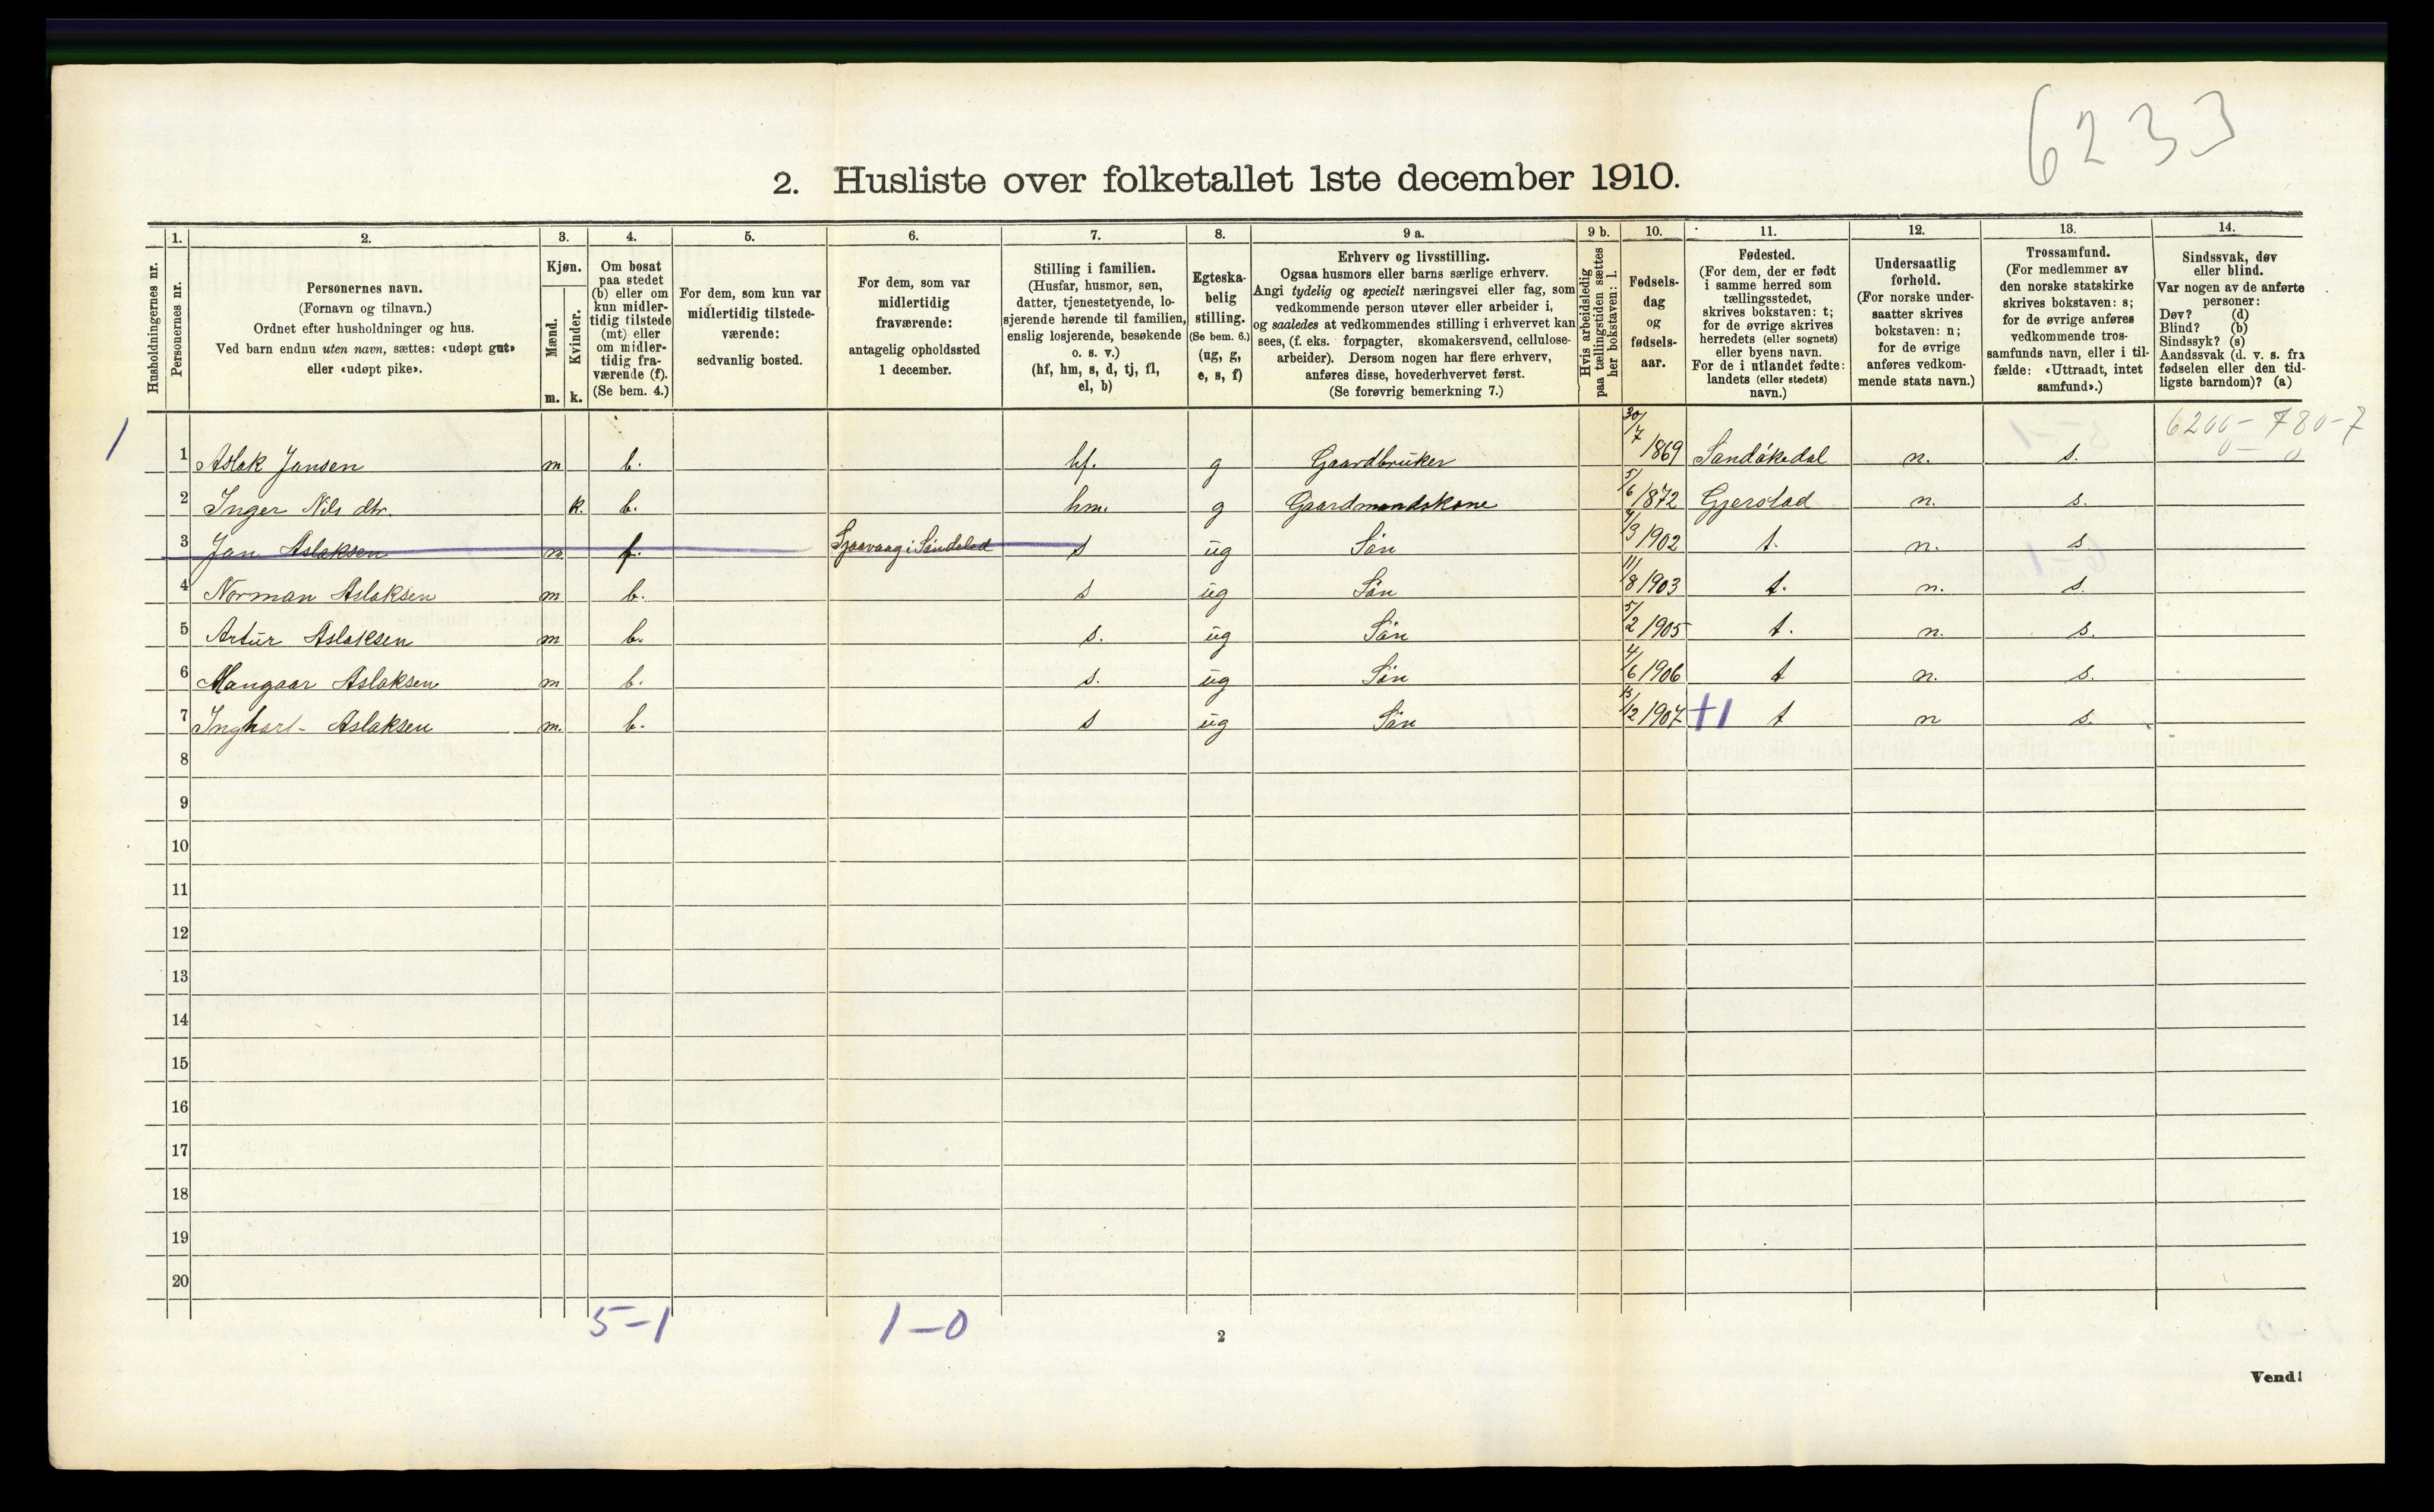 6233
2. Husliste over folketallet 1ste december 1910.
Husholdningernes nr.
1.
Personernes nr.
2.
Personernes navn.
(Fornavn og tilnavn.)
Ordnet efter husholdninger og hus.
Ved barn endnu uten navn, sættes: «udøpt gut»
eller «udøpt pike».
3.
Kjøn.
Mænd.
Kvinder.
m. k.
4.
Om bosat
paa stedet
(b) eller om
kun midler-
tidig tilstede
(mt) eller
om midler-
tidig fra-
værende (f).
(Se bem. 4.)
5.
For dem, som kun var
midlertidig tilstede-
værende:
sedvanlig bosted.
6.
For dem, som var
midlertidig
fraværende:
antagelig opholdssted
1 december.
7.
Stilling i familien.
(Husfar, husmor, søn,
datter, tjenestetyende, lo-
sjerende hørende til familien,
enslig losjerende, besøkende
o. s. v.)
(hf, hm, s, d, tj, fl,
el, b)
8.
Egteska-
belig
stilling.
(Se bem. 6.)
(ug, g,
e, s, f)
9 a.
Erhverv og livsstilling.
Ogsaa husmors eller barns særlige erhverv.
Angi tydelig og specielt næringsvei eller fag, som
vedkommende person utøver eller arbeider i,
og saaledes at vedkommendes stilling i erhvervet kan
sees, (f. eks. forpagter, skomakersvend, cellulose-
arbeider). Dersom nogen har flere erhverv,
anføres disse, hovederhvervet først.
(Se forøvrig bemerkning 7.)
9 b.
Hvis arbeidsledig
paa tællingstiden sættes
her bokstaven: l.
10.
Fødsels-
dag
og
fødsels-
aar.
11.
Fødested.
(For dem, der er født
i samme herred som
tællingsstedet,
skrives bokstaven: t;
for de øvrige skrives
herredets (eller sognets)
eller byens navn.
For de i utlandet fødte:
landets (eller stedets)
navn.)
12.
Undersaatlig
forhold.
(For norske under-
saatter skrives
bokstaven: n;
for de øvrige
anføres vedkom-
mende stats navn.)
13.
Trossamfund.
(For medlemmer av
den norske statskirke
skrives bokstaven: s;
for de øvrige anføres
vedkommende tros-
samfunds navn, eller i til-
fælde: «Uttraadt, intet
samfund».)
14.
Sindssvak, døv
eller blind.
Var nogen av de anførte
personer:
Døv? (d)
Blind? (b)
Sindssyk? (s)
Aandssvak (d. v. s. fra
fødselen eller den tid-
ligste barndom)? (a)
6200 - 780-7
0 - 0
1 1 Aslak Jansen m b. hf. g Gaardbruker 30/7 1869 Sandökedal n. s.
2 Inger Nils dtr. k. b. hm. g Gaardmandskone 5/6 1872 Gjerstad n. s.
3 Jan Aslaksen m. f. i Söndeled s ug Sön /3 1902 t. n. s
4 Norman Aslaksen m b. s ug Sön 11/8 1903 t. n. s.
5 Artur Aslaksen m b. s. ug Sön 5/2 1905 t. n. s.
6 Mangaar Aslaksen m b. s. ug Sön 4/6 1906 t n. s.
7 Inghart Aslaksen m. b. s ug Sön 13/12 1907 +1 t n s.
8
9
10
11
12
13
14
15
16
17
18
19
20
5-1 1-0
2
Vend!